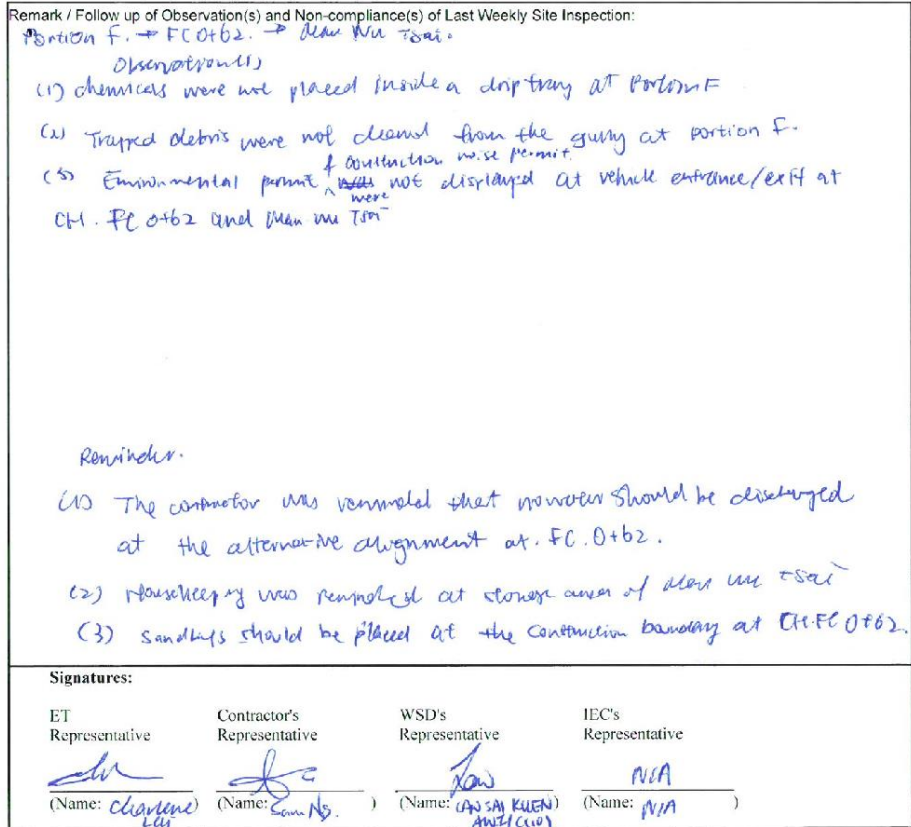 Remark / Follow up of Observation(s) and Non-compliance(s) of Last Weekly Site Inspection:
Portion F. → FC 0+62. → Man Wu Tsai.
Observation(s)
(1) chemicals were not placed inside a drip tray at Portion F
(2) Trapped debris were not cleaned from the gully at portion F.
& construction noise permit
(3) Environmental permit ^ was not displayed at vehicle entrance/exit at
were
CH. FC 0+62 and Man Wu Tsai
Reminder.
(1) The contractor was reminded that should be discharged
at the alternative alignment at. FC. 0+62.
(2) Housekeeping was reminded at storage area of Man Wu Tsai
(3) Sandbags should be placed at the construction boundary at CH.FC 0+62.
Signatures:
ET Contractor's WSD's IEC's
Representative Representative Representative Representative
N/A
(Name: Charlene) (Name: Sam Ng. ) (Name: LAN SAI KUEN) (Name: N/A )
Lai